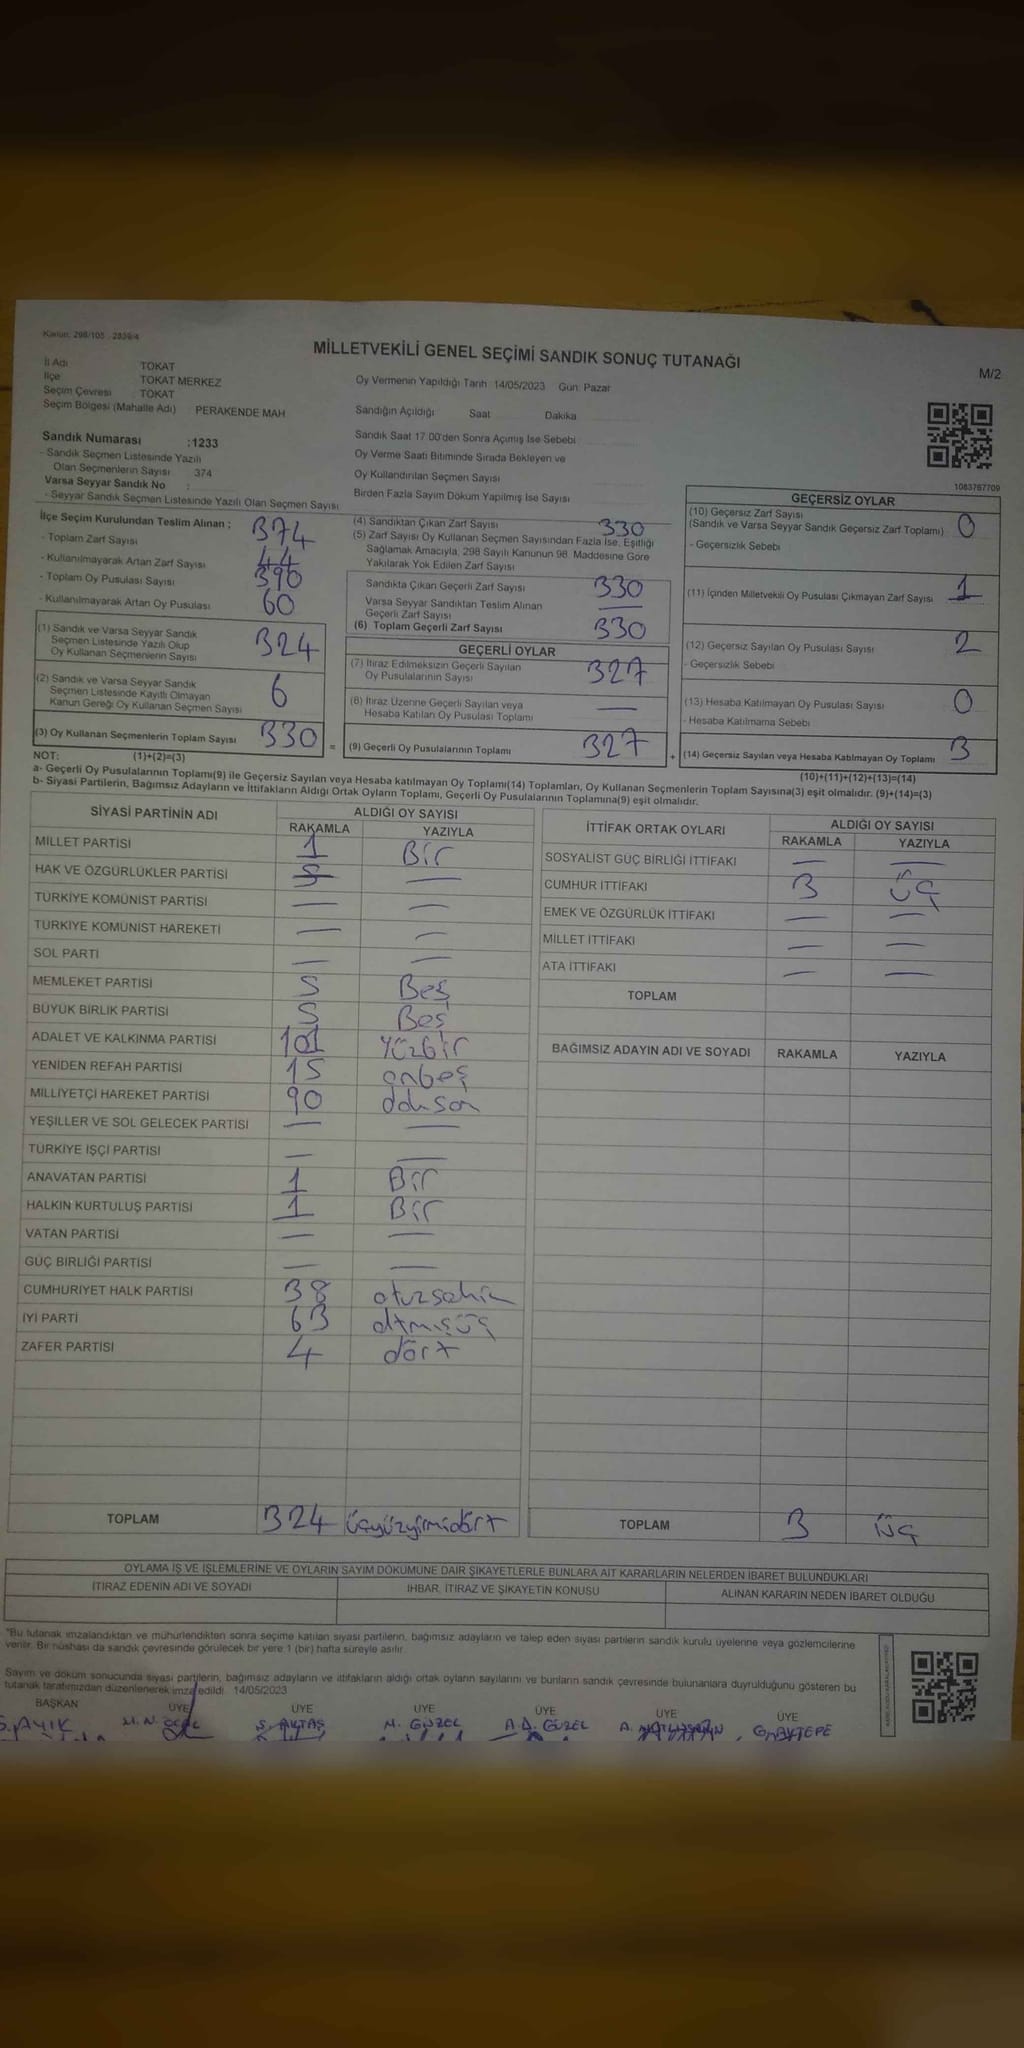 Kanun: 298/105 - 2839/4
MİLLETVEKİLİ GENEL SEÇİMİ SANDIK SONUÇ TUTANAĞI
M/2
İl Adı TOKAT
İlçe TOKAT MERKEZ
Seçim Çevresi : TOKAT
Seçim Bölgesi (Mahalle Adı) PERAKENDE MAH
Oy Vermenin Yapıldığı Tarih 14/05/2023 Gün: Pazar
Sandığın Açıldığı Saat Dakika
Sandık Numarası :1233
- Sandık Seçmen Listesinde Yazılı
Olan Seçmenlerin Sayısı : 374
Varsa Seyyar Sandık No :
- Seyyar Sandık Seçmen Listesinde Yazılı Olan Seçmen Sayısı
Sandık Saat 17.00'den Sonra Açımış İse Sebebi
Oy Verme Saati Bitiminde Sırada Bekleyen ve
Oy Kullandırılan Seçmen Sayısı
Birden Fazla Sayım Döküm Yapılmış İse Sayısı
1083767709
İlçe Seçim Kurulundan Teslim Alınan ;
- Toplam Zarf Sayısı 374
- Kullanılmayarak Artan Zarf Sayısı 44
- Toplam Oy Pusulası Sayısı 390
- Kullanılmayarak Artan Oy Pusulası 60
(1) Sandık ve Varsa Seyyar Sandık
Seçmen Listesinde Yazılı Olup
Oy Kullanan Seçmenlerin Sayısı 324
(2) Sandık ve Varsa Seyyar Sandık
Seçmen Listesinde Kayıtlı Olmayan
Kanun Gereği Oy Kullanan Seçmen Sayısı 6
(3) Oy Kullanan Seçmenlerin Toplam Sayısı 330 =
(4) Sandıktan Çıkan Zarf Sayısı 330
(5) Zarf Sayısı Oy Kullanan Seçmen Sayısından Fazla İse, Eşitliği
Sağlamak Amacıyla, 298 Sayılı Kanunun 98. Maddesine Göre
Yakılarak Yok Edilen Zarf Sayısı
Sandıkta Çıkan Geçerli Zarf Sayısı 330
Varsa Seyyar Sandıktan Teslim Alınan
Geçerli Zarf Sayısı —
(6) Toplam Geçerli Zarf Sayısı 330
GEÇERLİ OYLAR
(7) İtiraz Edilmeksizin Geçerli Sayılan
Oy Pusulalarının Sayısı 327
(8) İtiraz Üzerine Geçerli Sayılan veya
Hesaba Katılan Oy Pusulası Toplamı —
(9) Geçerli Oy Pusulalarının Toplamı 327 +
GEÇERSİZ OYLAR
(10) Geçersiz Zarf Sayısı
(Sandık ve Varsa Seyyar Sandık Geçersiz Zarf Toplamı) 0
- Geçersizlik Sebebi
(11) İçinden Milletvekili Oy Pusulası Çıkmayan Zarf Sayısı 1
(12) Geçersiz Sayılan Oy Pusulası Sayısı 2
- Geçersizlik Sebebi
(13) Hesaba Katılmayan Oy Pusulası Sayısı 0
- Hesaba Katılmama Sebebi
(14) Geçersiz Sayılan veya Hesaba Katılmayan Oy Toplamı 3
NOT: (1)+(2)=(3)
(10)+(11)+(12)+(13)=(14)
a- Geçerli Oy Pusulalarının Toplamı(9) ile Geçersiz Sayılan veya Hesaba katılmayan Oy Toplamı(14) Toplamları, Oy Kullanan Seçmenlerin Toplam Sayısına(3) eşit olmalıdır. (9)+(14)=(3)
b- Siyasi Partilerin, Bağımsız Adayların ve İttifakların Aldığı Ortak Oyların Toplamı, Geçerli Oy Pusulalarının Toplamına(9) eşit olmalıdır.
SİYASİ PARTİNİN ADI ALDIĞI OY SAYISI
RAKAMLA YAZIYLA
MİLLET PARTİSİ 1 Bir
HAK VE ÖZGÜRLÜKLER PARTİSİ — —
TÜRKİYE KOMÜNİST PARTİSİ — —
TÜRKİYE KOMÜNİST HAREKETİ — —
SOL PARTİ — —
MEMLEKET PARTİSİ 5 Beş
BÜYÜK BİRLİK PARTİSİ 5 Beş
ADALET VE KALKINMA PARTİSİ 101 Yüzbir
YENİDEN REFAH PARTİSİ 15 onbeş
MİLLİYETÇİ HAREKET PARTİSİ 90 doksan
YEŞİLLER VE SOL GELECEK PARTİSİ — —
TÜRKİYE İŞÇİ PARTİSİ — —
ANAVATAN PARTİSİ 1 Bir
HALKIN KURTULUŞ PARTİSİ 1 Bir
VATAN PARTİSİ — —
GÜÇ BİRLİĞİ PARTİSİ — —
CUMHURİYET HALK PARTİSİ 38 otuzsekiz
İYİ PARTİ 63 altmışüç
ZAFER PARTİSİ 4 dört
TOPLAM 324 üçyüzyirmidört
İTTİFAK ORTAK OYLARI ALDIĞI OY SAYISI
RAKAMLA YAZIYLA
SOSYALİST GÜÇ BİRLİĞİ İTTİFAKI — —
CUMHUR İTTİFAKI 3 üç
EMEK VE ÖZGÜRLÜK İTTİFAKI — —
MİLLET İTTİFAKI — —
ATA İTTİFAKI — —
TOPLAM
BAĞIMSIZ ADAYIN ADI VE SOYADI RAKAMLA YAZIYLA
TOPLAM 3 üç
OYLAMA İŞ VE İŞLEMLERİNE VE OYLARIN SAYIM DÖKÜMÜNE DAİR ŞİKAYETLERLE BUNLARA AİT KARARLARIN NELERDEN İBARET BULUNDUKLARI
İTİRAZ EDENİN ADI VE SOYADI İHBAR, İTİRAZ VE ŞİKAYETİN KONUSU ALINAN KARARIN NEDEN İBARET OLDUĞU
*Bu tutanak imzalandıktan ve mühürlendikten sonra seçime katılan siyasi partilerin, bağımsız adayların ve talep eden siyasi partilerin sandık kurulu üyelerine veya gözlemcilerine
verilir. Bir nüshası da sandık çevresinde görülecek bir yere 1 (bir) hafta süreyle asılır.
Sayım ve döküm sonucunda siyasi partilerin, bağımsız adayların ve ittifakların aldığı ortak oyların sayılarını ve bunların sandık çevresinde bulunanlara duyrulduğunu gösteren bu
tutanak tarafımızdan düzenlenerek imza edildi. 14/05/2023
BAŞKAN ÜYE ÜYE ÜYE ÜYE ÜYE ÜYE
S. AYIK M. N. S. AKTAŞ M. GÜZEL A.A. GÜZEL A. G. AKTEPE